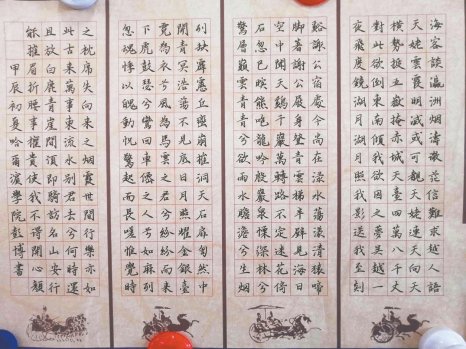 海客談瀛洲烟濤微茫信難求越人語
天姥雲霞明滅或可覩天姥連天向天
橫勢拔五嶽掩赤城天臺四萬八千丈
對此欲倒東南傾我欲因之夢吳越一
夜飛度鏡湖月湖月照我影送我至剡
谿謝公宿處今尚在淥水蕩漾清猿啼
脚著謝公屐身登青雲梯半壁見海日
空中聞天鷄千巖萬轉路不定迷花倚
石忽已暝熊咆龍吟殷巖泉慄深林兮
驚層巔雲青青兮欲雨水澹澹兮生烟
列缺霹靂丘巒崩摧洞天石扉訇然中
開青冥浩蕩不見底日月照耀金銀臺
霓為衣兮風為馬雲之君兮紛紛而來
下虎鼓瑟兮鸞回車僊之人兮如麻列
忽魂悸以魄動怳驚起而長嗟惟覺時
之枕席失向來之烟霞世間行樂亦如
此古來萬事東流水別君去兮何時還
且放白鹿青崖間須行即騎訪名山安
能摧眉折腰事權貴使我不得開心顏
甲辰初夏哈爾濱學院彭博書